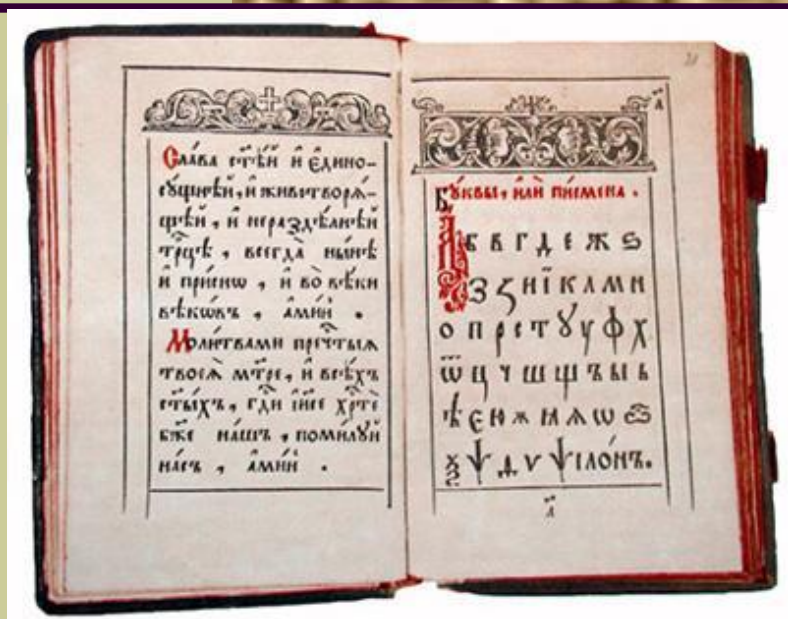 Сла́ва ст҃ѣ́й и҆ є҆дино-
сꙋ́щнѣй, и҆ животворѧ́-
щѣй, и҆ нераздѣ́лнѣй
трⷪ҇цѣ, всегда̀ ны́нѣ
и҆ при́снѡ, и҆ во̀ вѣ́ки
вѣкѡ́въ, а҆ми́нь.
Моли́твами пречⷭ҇тыѧ
твоеѧ̀ мт҃ре, и҆ всѣ́хъ
ст҃ы́хъ, гдⷭ҇и і҆и҃се хрⷭ҇тѐ
бж҃е на́шъ, поми́лꙋй
на́съ, а҆ми́нь.
Бꙋ́квы, и҆лѝ пи́смена.
А б в г д е ж ѕ
з ꙁ и ї к л м н
о п р с т ꙋ у ф х
ѿ ц ч ш щ ъ ы ь
ѣ є ю ѫ ꙗ ѧ ѡ ѽ
ѯ ѱ ѳ ѵ ѱїло́нъ.